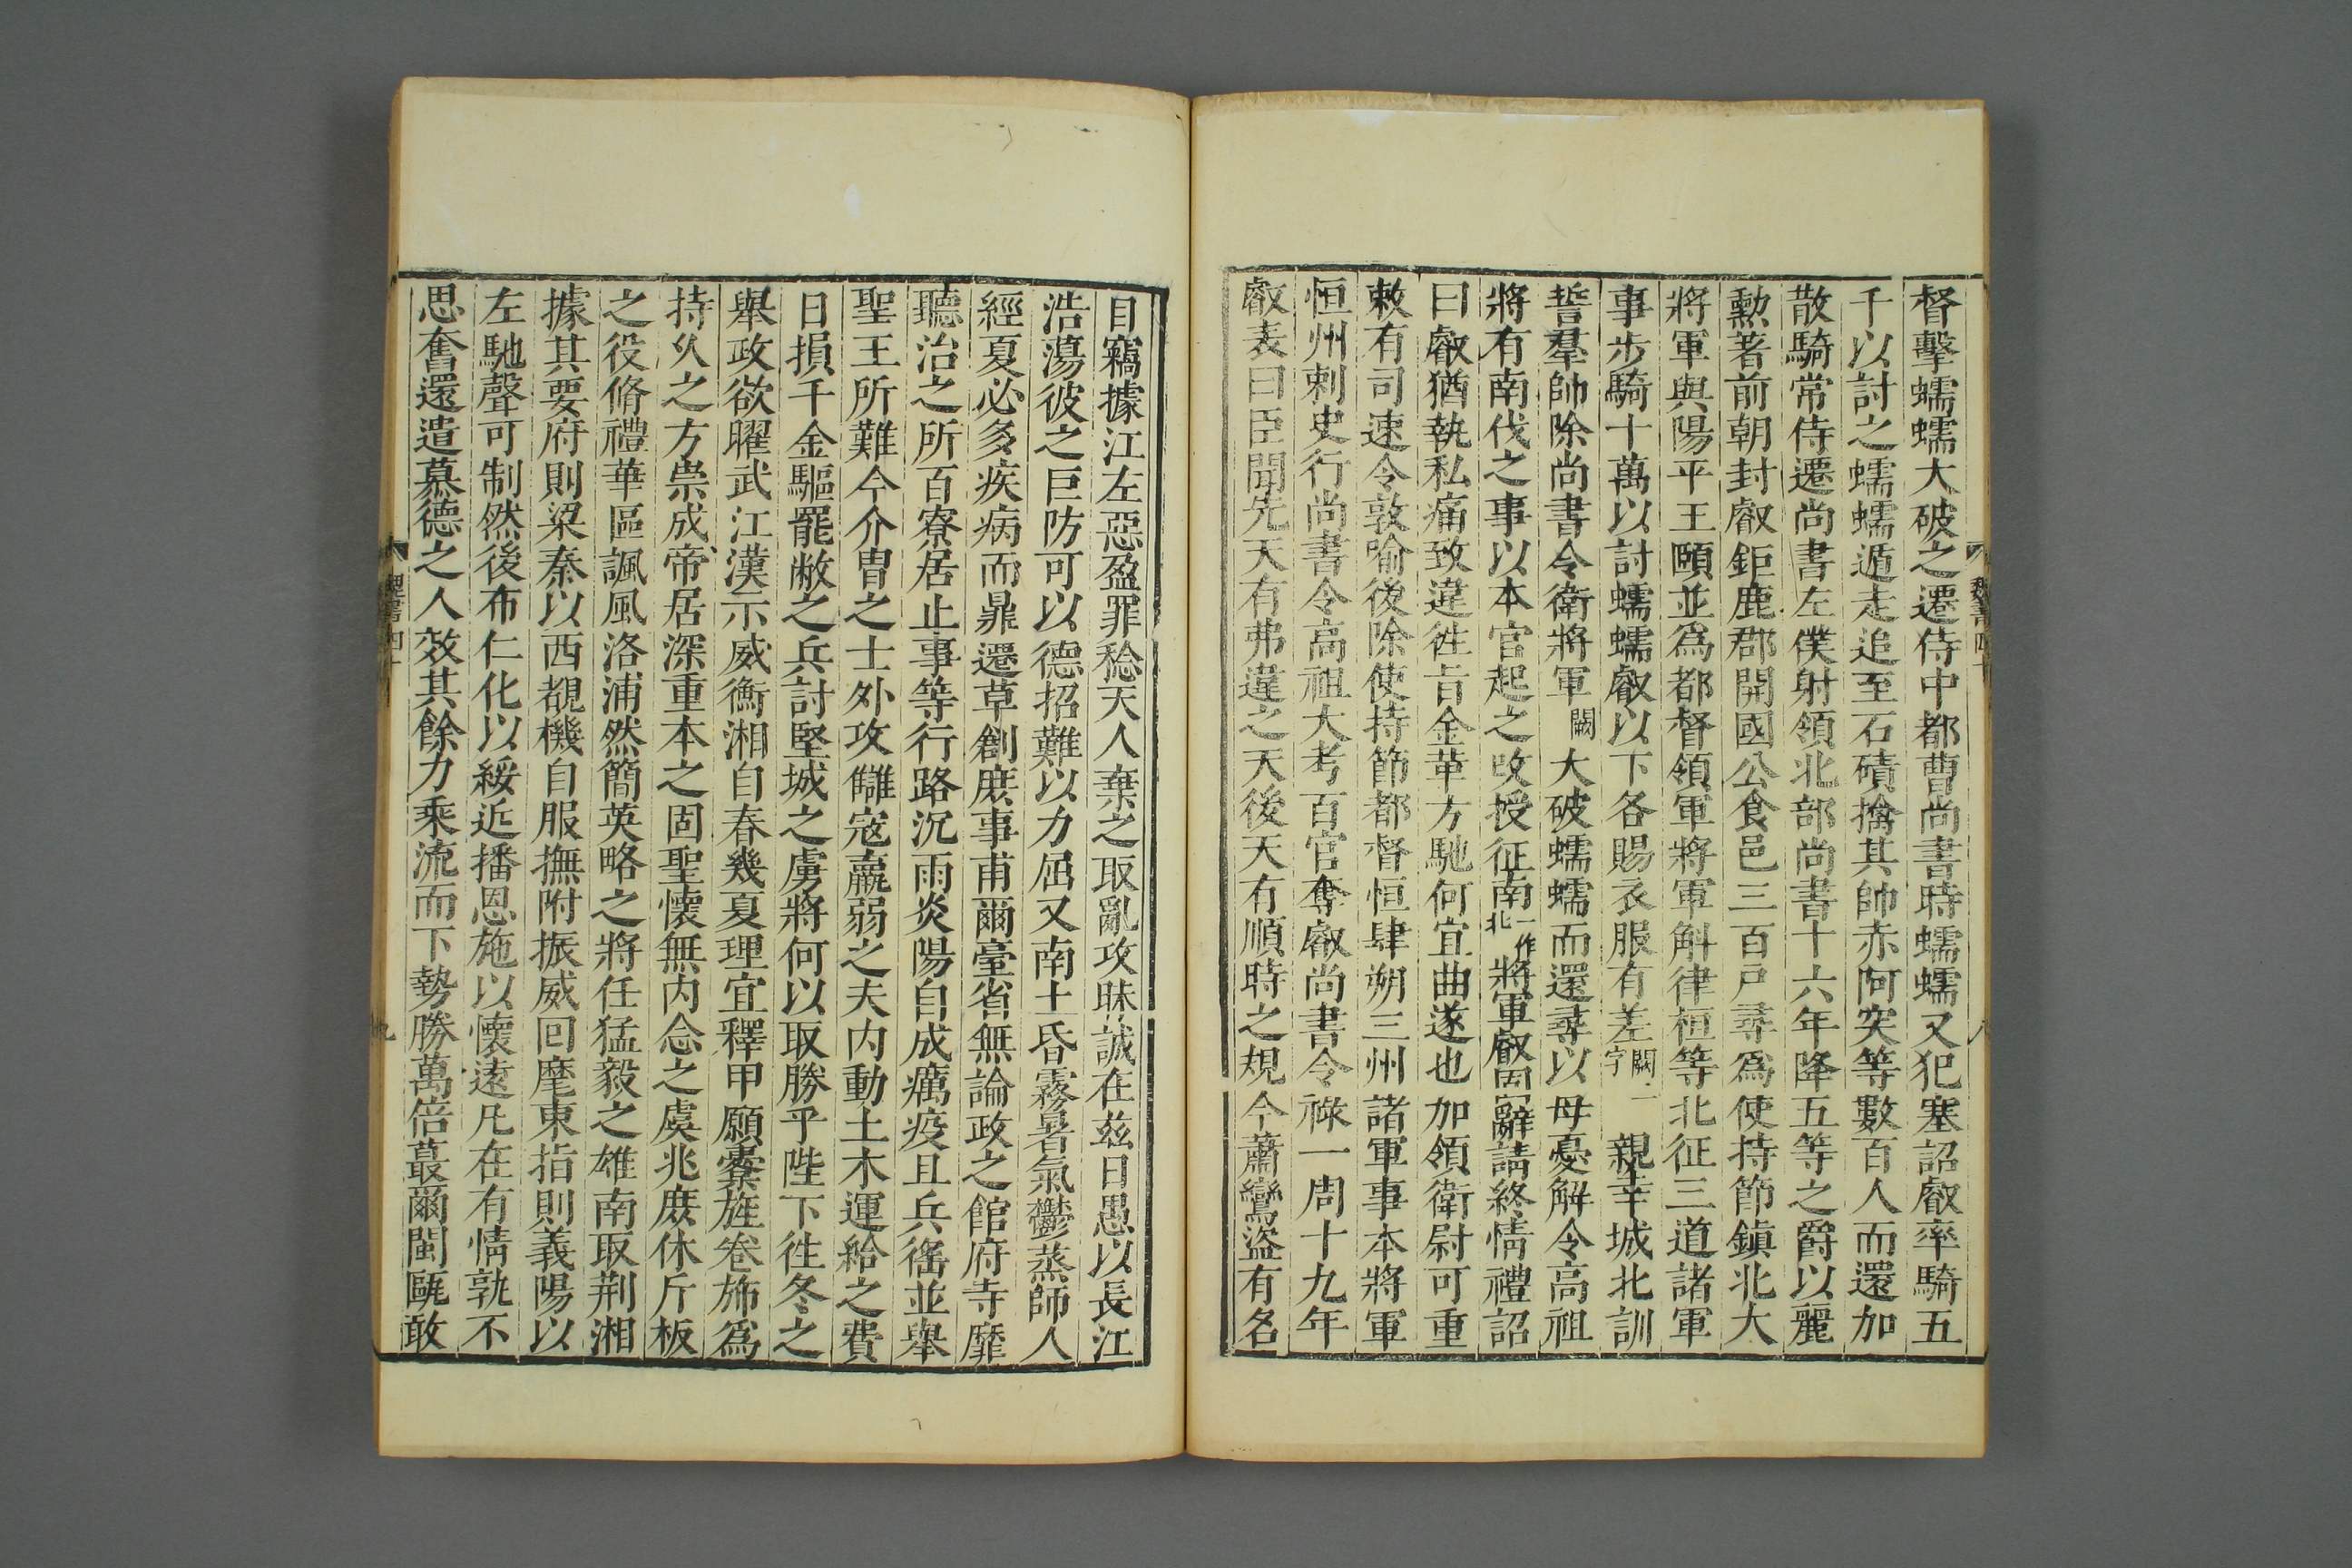 督擊蠕蠕大破之遷侍中都曹尚書時蠕蠕又犯塞詔叡率騎五
千以討之蠕蠕遁走追至石磧擒其帥赤阿突等數百人而還加
散騎常侍遷尚書左僕射領北部尚書十六年降五等之爵以麗
勳著前朝封叡鉅鹿郡開國公食邑三百戶尋爲使持節鎭北大
將軍與陽平王頤並爲都督領軍將軍斛律桓等北征三道諸軍
事步騎十萬以討蠕蠕叡以下各賜衣服有差闕一字親幸城北訓
誓羣帥除尚書令衛將軍闕大破蠕蠕而還尋以母憂解令高祖
將有南伐之事以本官起之改授征南一作北將軍叡固辭請終情禮詔
曰叡猶執私痛致違徃旨金革方馳何宜曲遂也加領衛尉可重
敕有司速令敦喻後除使持節都督恒肆朔三州諸軍事本將軍
恒州刺史行尚書令高祖大考百官奪叡尚書令祿一周十九年
叡表曰臣聞先天有弗違之天後天有順時之規今蕭鸞盜有名
目竊據江左惡盈罪稔天人棄之取亂攻昧誠在兹日愚以長江
浩蕩彼之巨防可以德招難以力屈又南土昏霧暑氣鬱蒸師人
經夏必多疾病而鼎遷草創庶事甫爾臺省無論政之館府寺靡
聽治之所百寮居止事等行路沉雨炎陽自成癘疫且兵徭並舉
聖王所難今介冑之士外攻讎寇羸弱之夫内動土木運給之費
日損千金驅罷敝之兵討堅城之虜將何以取勝乎陛下徃冬之
舉政欲曜武江漢示威衡湘自春幾夏理宜釋甲願褰旌卷斾爲
持久之方祟成帝居深重本之固聖懷無内念之虞兆庶休斤板
之役脩禮華區諷風洛浦然簡英略之將任猛毅之雄南取荆湘
據其要府則梁秦以西覩機自服撫附振威回麾東指則義陽以
左馳聲可制然後布仁化以綏近播恩施以懷遠凡在有情孰不
思奮還遣慕德之人效其餘力乘流而下勢勝萬倍蕞爾閩甌敢
魏書四十
八
魏書四十
九